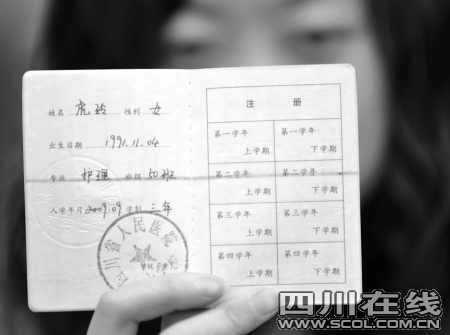 姓名 虎玲 性别 女
出生日期 1991.11.04
专业 护理 班级 50班
入学年月 2009.09 学制 三年
川省人民医院
注 册
第一学年 上学期 第一学年 下学期
第二学年 上学期 第二学年 下学期
第三学年 上学期 第三学年 下学期
第四学年 上学期 第四学年 下学期
四川在线
WWW.SCOL.COM.CN